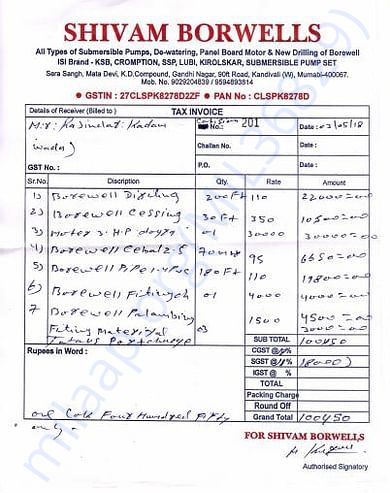 SHIVAM BORWELLS
All Types of Submersible Pumps, De-watering, Panel Board Motor & New Drilling of Borewell
ISI Brand - KSB, CROMPTION, SSP, LUBI, KIROLSKAR, SUBMERSIBLE PUMP SET
Sera Sangh, Mata Devi, K.D.Compound, Gandhi Nagar, 90ft Road, Kandivali (W), Mumabi-400067.
Mob. No. 9029204839 / 9594893614
• GSTIN : 27CLSPK8278D2ZF • PAN No : CLSPK8278D
Details of Receiver (Billed to) TAX INVOICE
No.: 201 Date : 03/05/18
Challan No. Date :
GST No.: P.O. Date :
Sr.No. Discription Qty. Rate Amount
1) Borewell 200Ft 110 22000=00
2) Borewell Cessing 30Ft 350 10500=00
3) Moter 3.H.P 01 30000 30000=00
4) Borewell 95 6650=00
5) Borewell 180Ft 110 19800=00
6) Borewell 01 4000 4000=00
7 Borewell 1500 4500=00
03 3000=00
SUB TOTAL 100450
Rupees in Word : CGST @ %
SGST @ % 18000
IGST @ %
TOTAL
Packing Charge
Round Off
one Four Hundred Fifty Grand Total 100450
only
FOR SHIVAM BORWELLS
Authorised Signatory